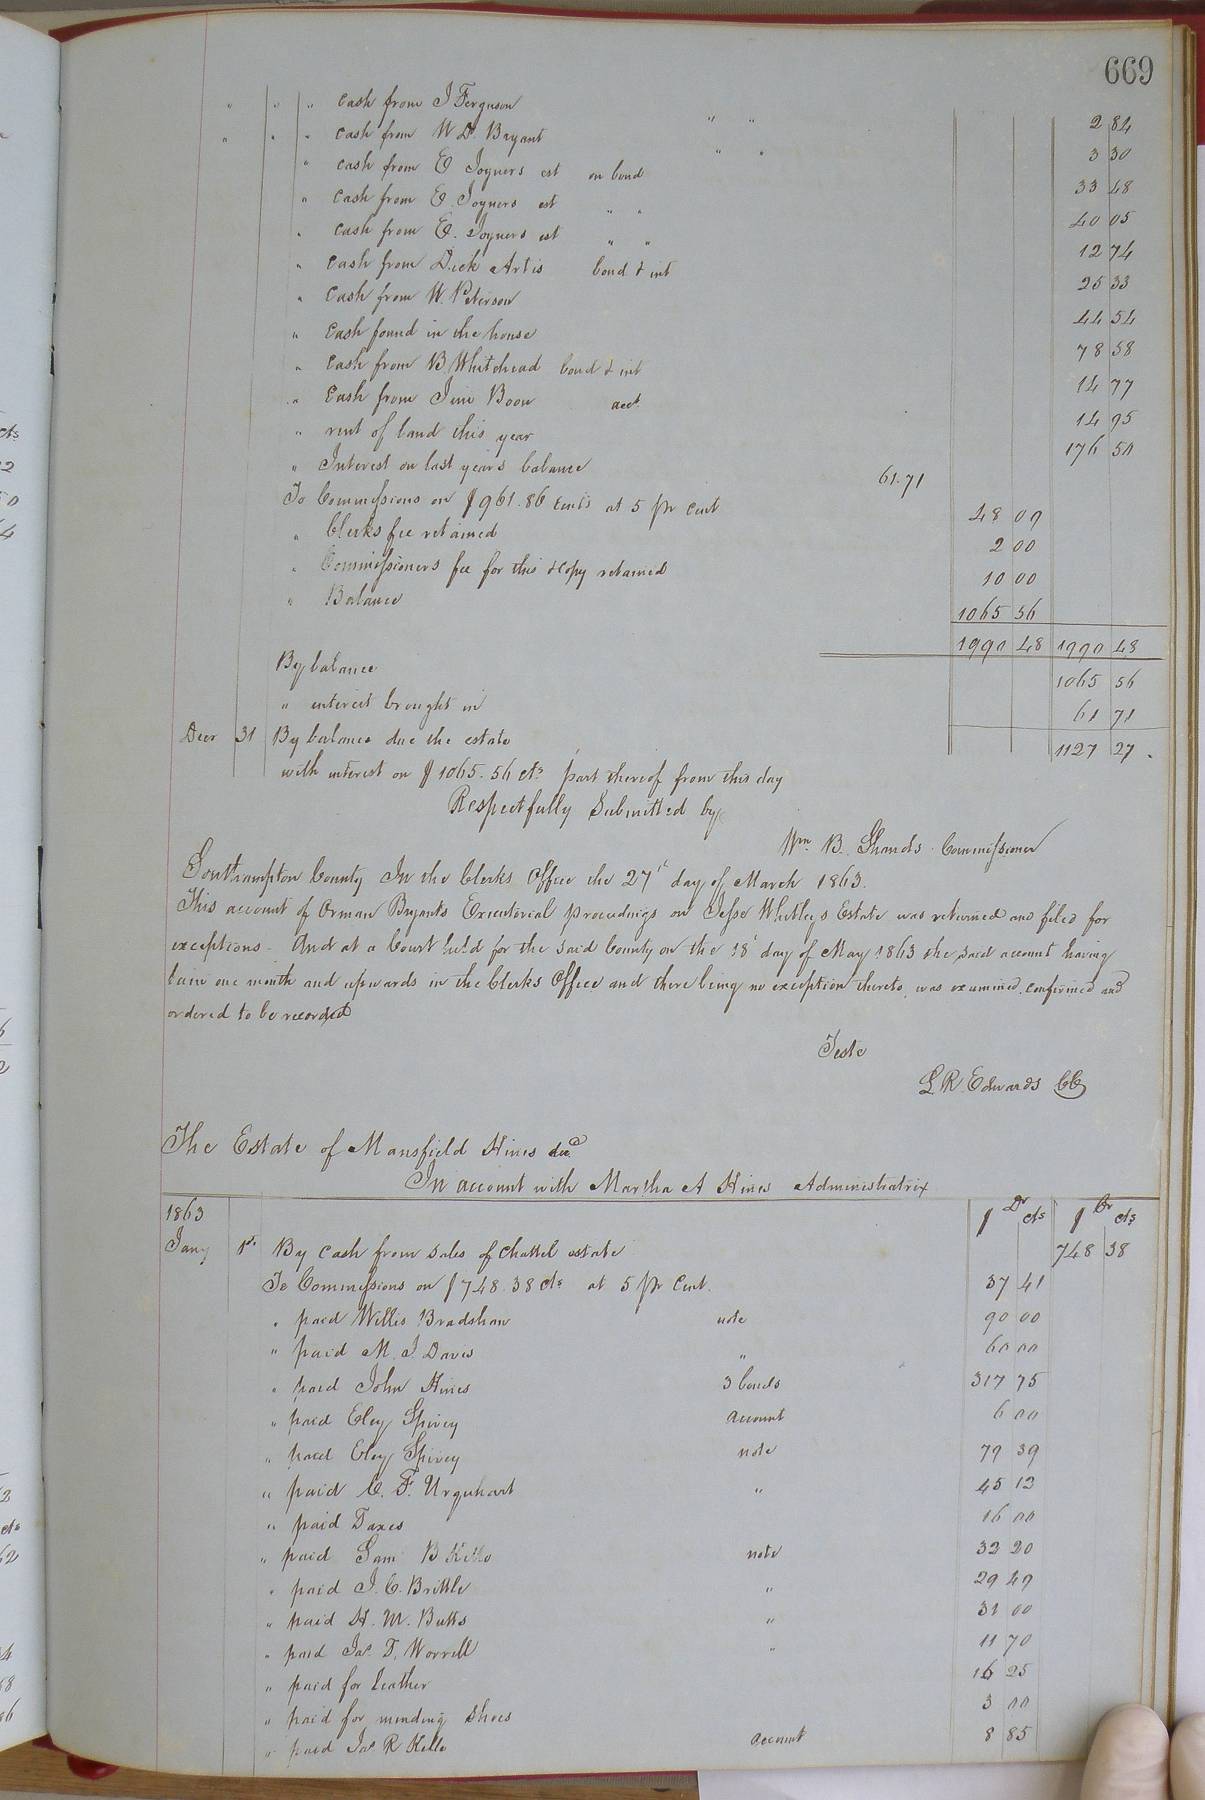 669
" " " Cash from J Ferguson " " 2 84
" " " Cash from W D. Bryant " " 3 30
" Cash from E Joyners est on bond 33 48
" Cash from E. Joyners est " " 40 05
" Cash from E. Joyners est " " 12 74
" Cash from Dick Artis bond & int 25 33
" Cash from W. Peterson 44 54
" Cash found in the house 78 58
" Cash from B Whitehead bond & int 14 77
" Cash from Jim Boon acct. 14 95
" rent of land this year 176 50
" Interest on last years balance 61.71
To Commissions on $961.86 cents at 5 pr cent 48 09
" Clerks fee retained 2 00
" Commissioners fee for this & copy retained 10 00
" Balance 1065 56
1990 48 1990 48
By balance 1065 56
" interest brought in 61 71
Decr 31 By balance due the estate 1127 27.
with interest on $1065.56 cts part thereof from this day
Respectfully Submitted by
Wm. B. Shands Commissioner
Southampton County In the Clerks Office the 27th day of March 1863.
This account of Orman Bryants Executorial proceedings on Jesse Whitleys Estate was returned and filed for
exceptions - And at a Court held for the said County on the 18th day of May 1863 the said account having
lain one month and upwards in the Clerks Office and there being no exception thereto, was examined, confirmed and
ordered to be recorded
Teste
L R Edwards CC
The Estate of Mansfield Hines decd
In account with Martha A Hines Administratrix
1863 $ Dr cts $ Cr cts
Jany 1st By cash from sales of chattel estate 748 38
To Commissions on $748.38 cts at 5 pr Cent. 37 41
" paid Willis Bradshaw note 90 00
" paid M. J. Davis " 60 00
" paid John Hines 3 bonds 317 75
" paid Eley Spivey account 6 00
" paid Eley Spivey note 79 39
" paid C. F. Urquhart " 45 13
" paid Taxes 16 00
" paid Sam B Kello note 32 20
" paid J. C. Brittle " 29 49
" paid H. M. Butts " 31 00
" paid Jas. T. Worrell " 11 70
" paid for Leather 16 25
" paid for mending Shoes 3 00
" paid Jas R Kello account 8 85